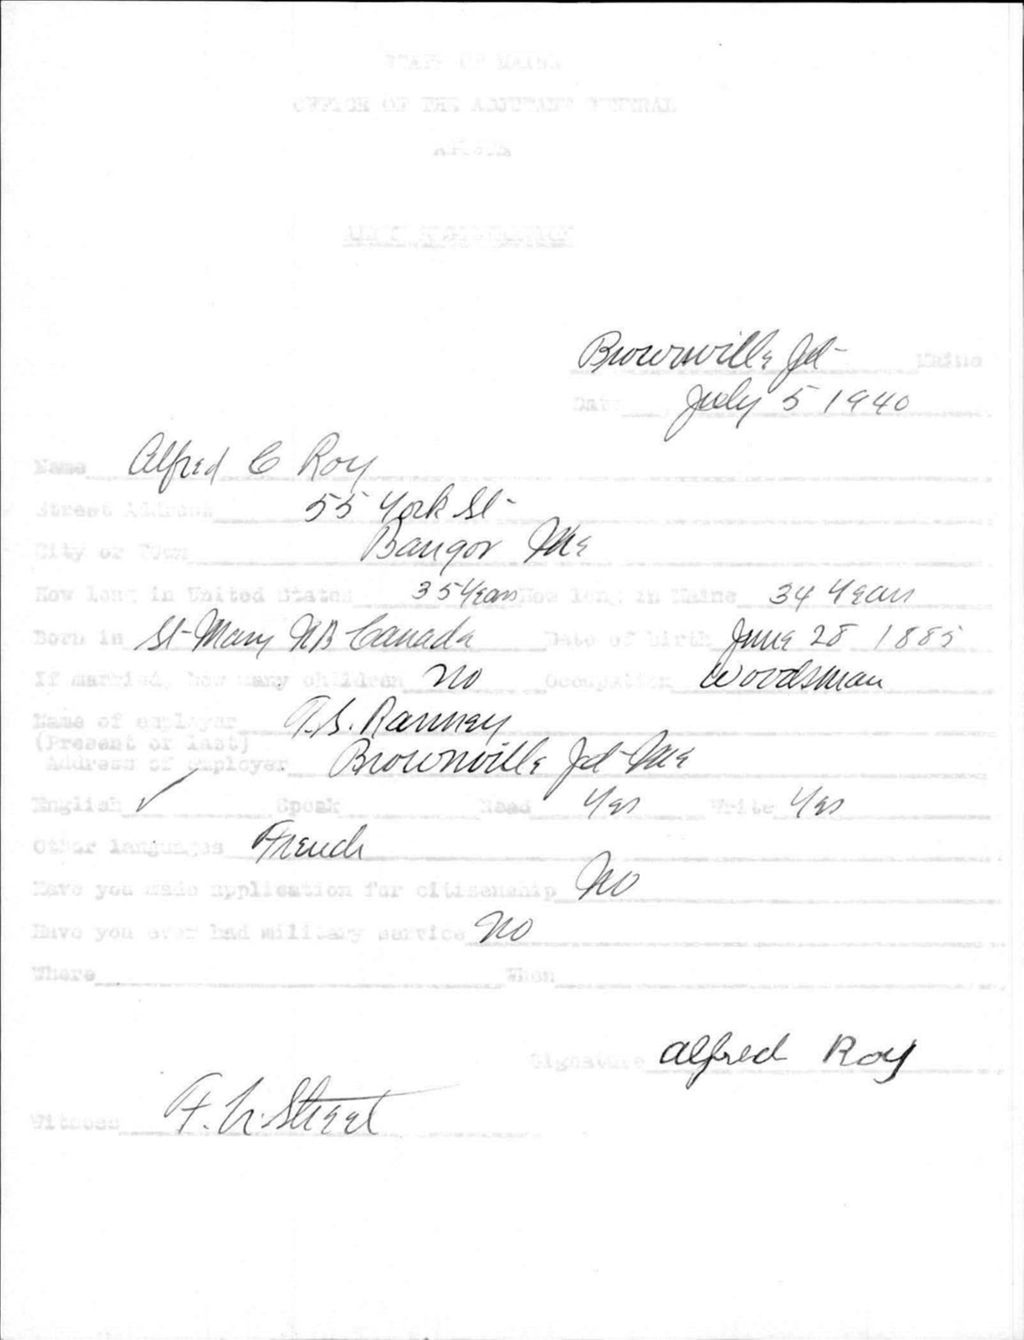 STATE OF MAINE
OFFICE OF THE ADJUTANT GENERAL
AUGUSTA
ALIEN REGISTRATION
Brownville Jct Maine
Date July 5 1940
Name Alfred C Roy
Street Address 55 York St
City or Town Bangor Me
How long in United States 35 Years How long in Maine 34 Years
Born in St Mary NB Canada Date of birth June 28 1885
If married, how many children No Occupation Woodsman
Name of employer Ranney
(Present or last)
Address of employer Brownville Jct Me
English ✓ Speak Read Yes Write Yes
Other languages French
Have you made application for citizenship No
Have you ever had military service No
Where When
Signature Alfred Roy
Witness Street